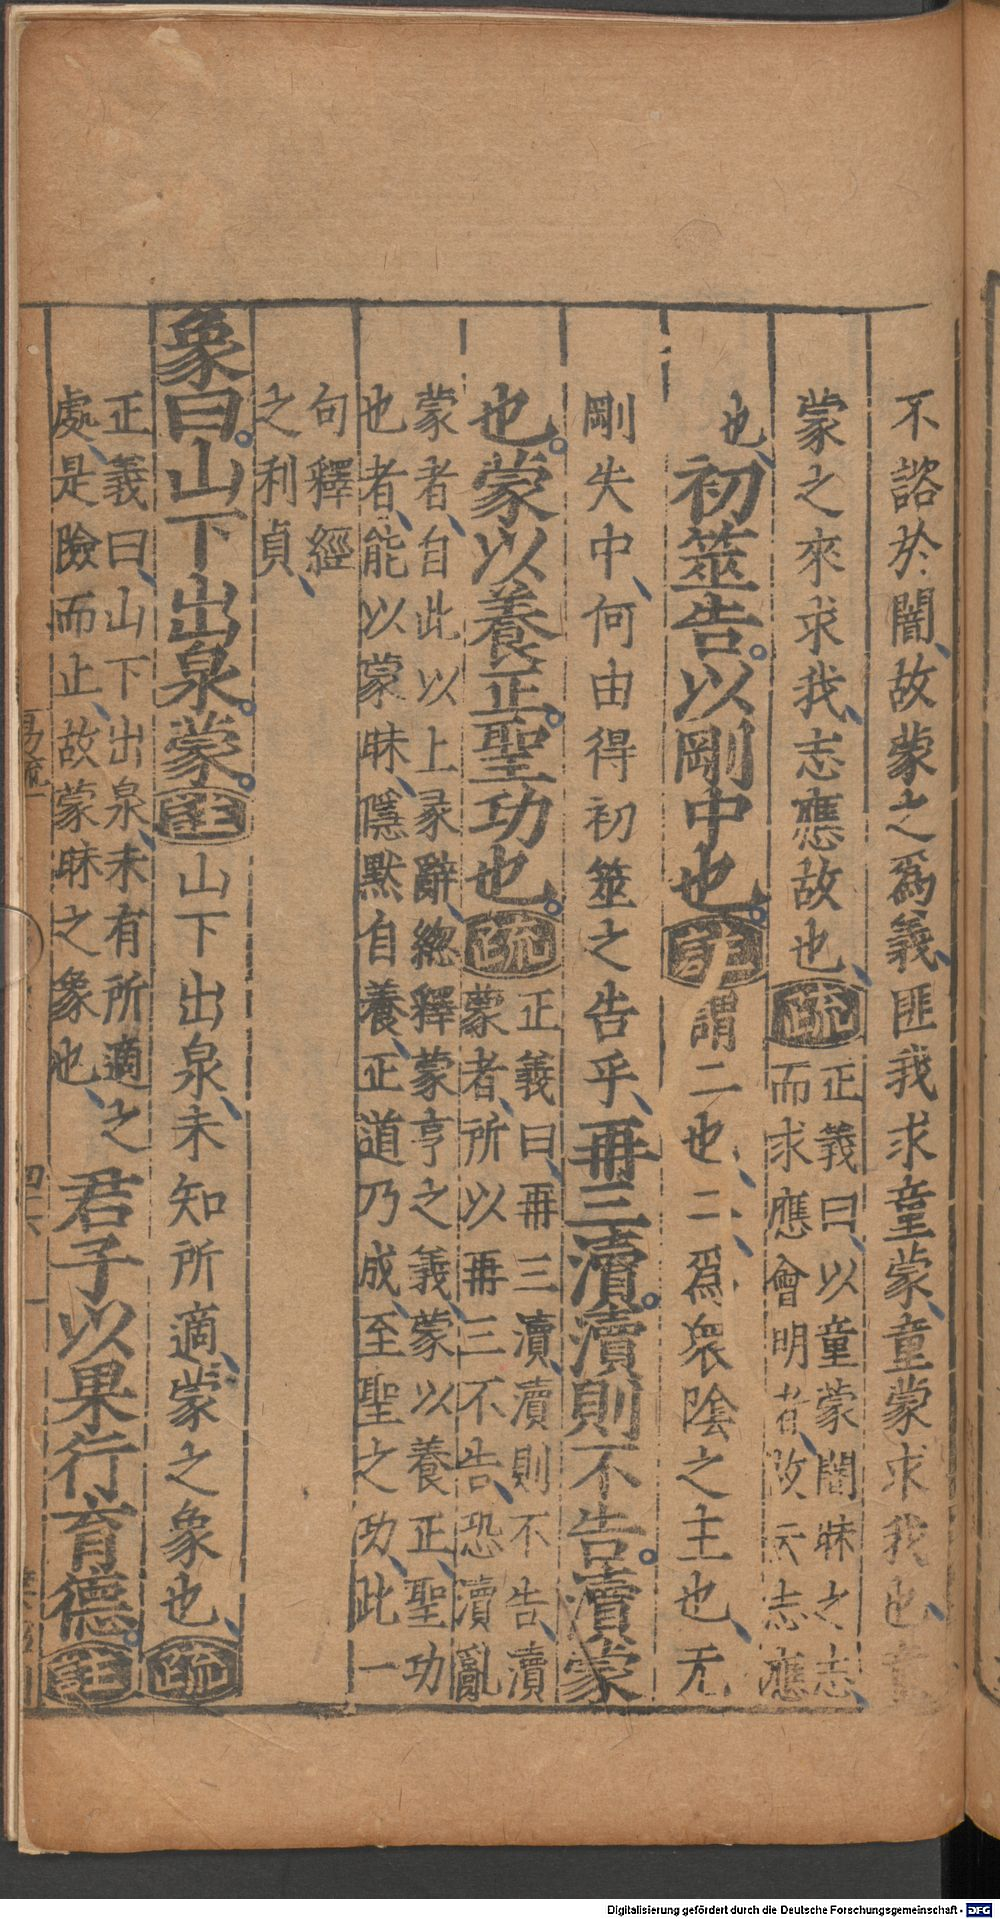 不諮於闇故蒙之爲義匪我求童蒙童蒙求我也童
蒙之來求我志應故也疏正義曰以童蒙闇昧之志
而求應會明者故云志應
也初筮告以剛中也註謂二也二爲衆陰之主也无
剛失中何由得初筮之告乎再三瀆瀆則不告瀆蒙
也蒙以養正聖功也疏正義曰再三瀆瀆則不告瀆
蒙者所以再三不告恐瀆亂
蒙者自此以上彖辭緫釋蒙亨之義蒙以養正聖功
也者能以蒙昧隱默自養正道乃成至聖之功此一
句釋經
之利貞
象曰山下出泉蒙註山下出泉未知所適蒙之象也疏
正義曰山下出泉未有所適之
處是險而止故蒙昧之象也君子以果行育德註
Digitalisierung gefördert durch die Deutsche Forschungsgemeinschaft - DFG